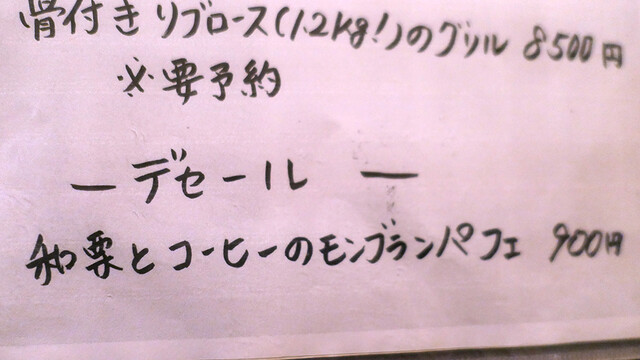 骨付きリブロース(1.2kg!)のグリル 8500円
※要予約
ー デセール ー
和栗とコーヒーのモンブランパフェ 900円